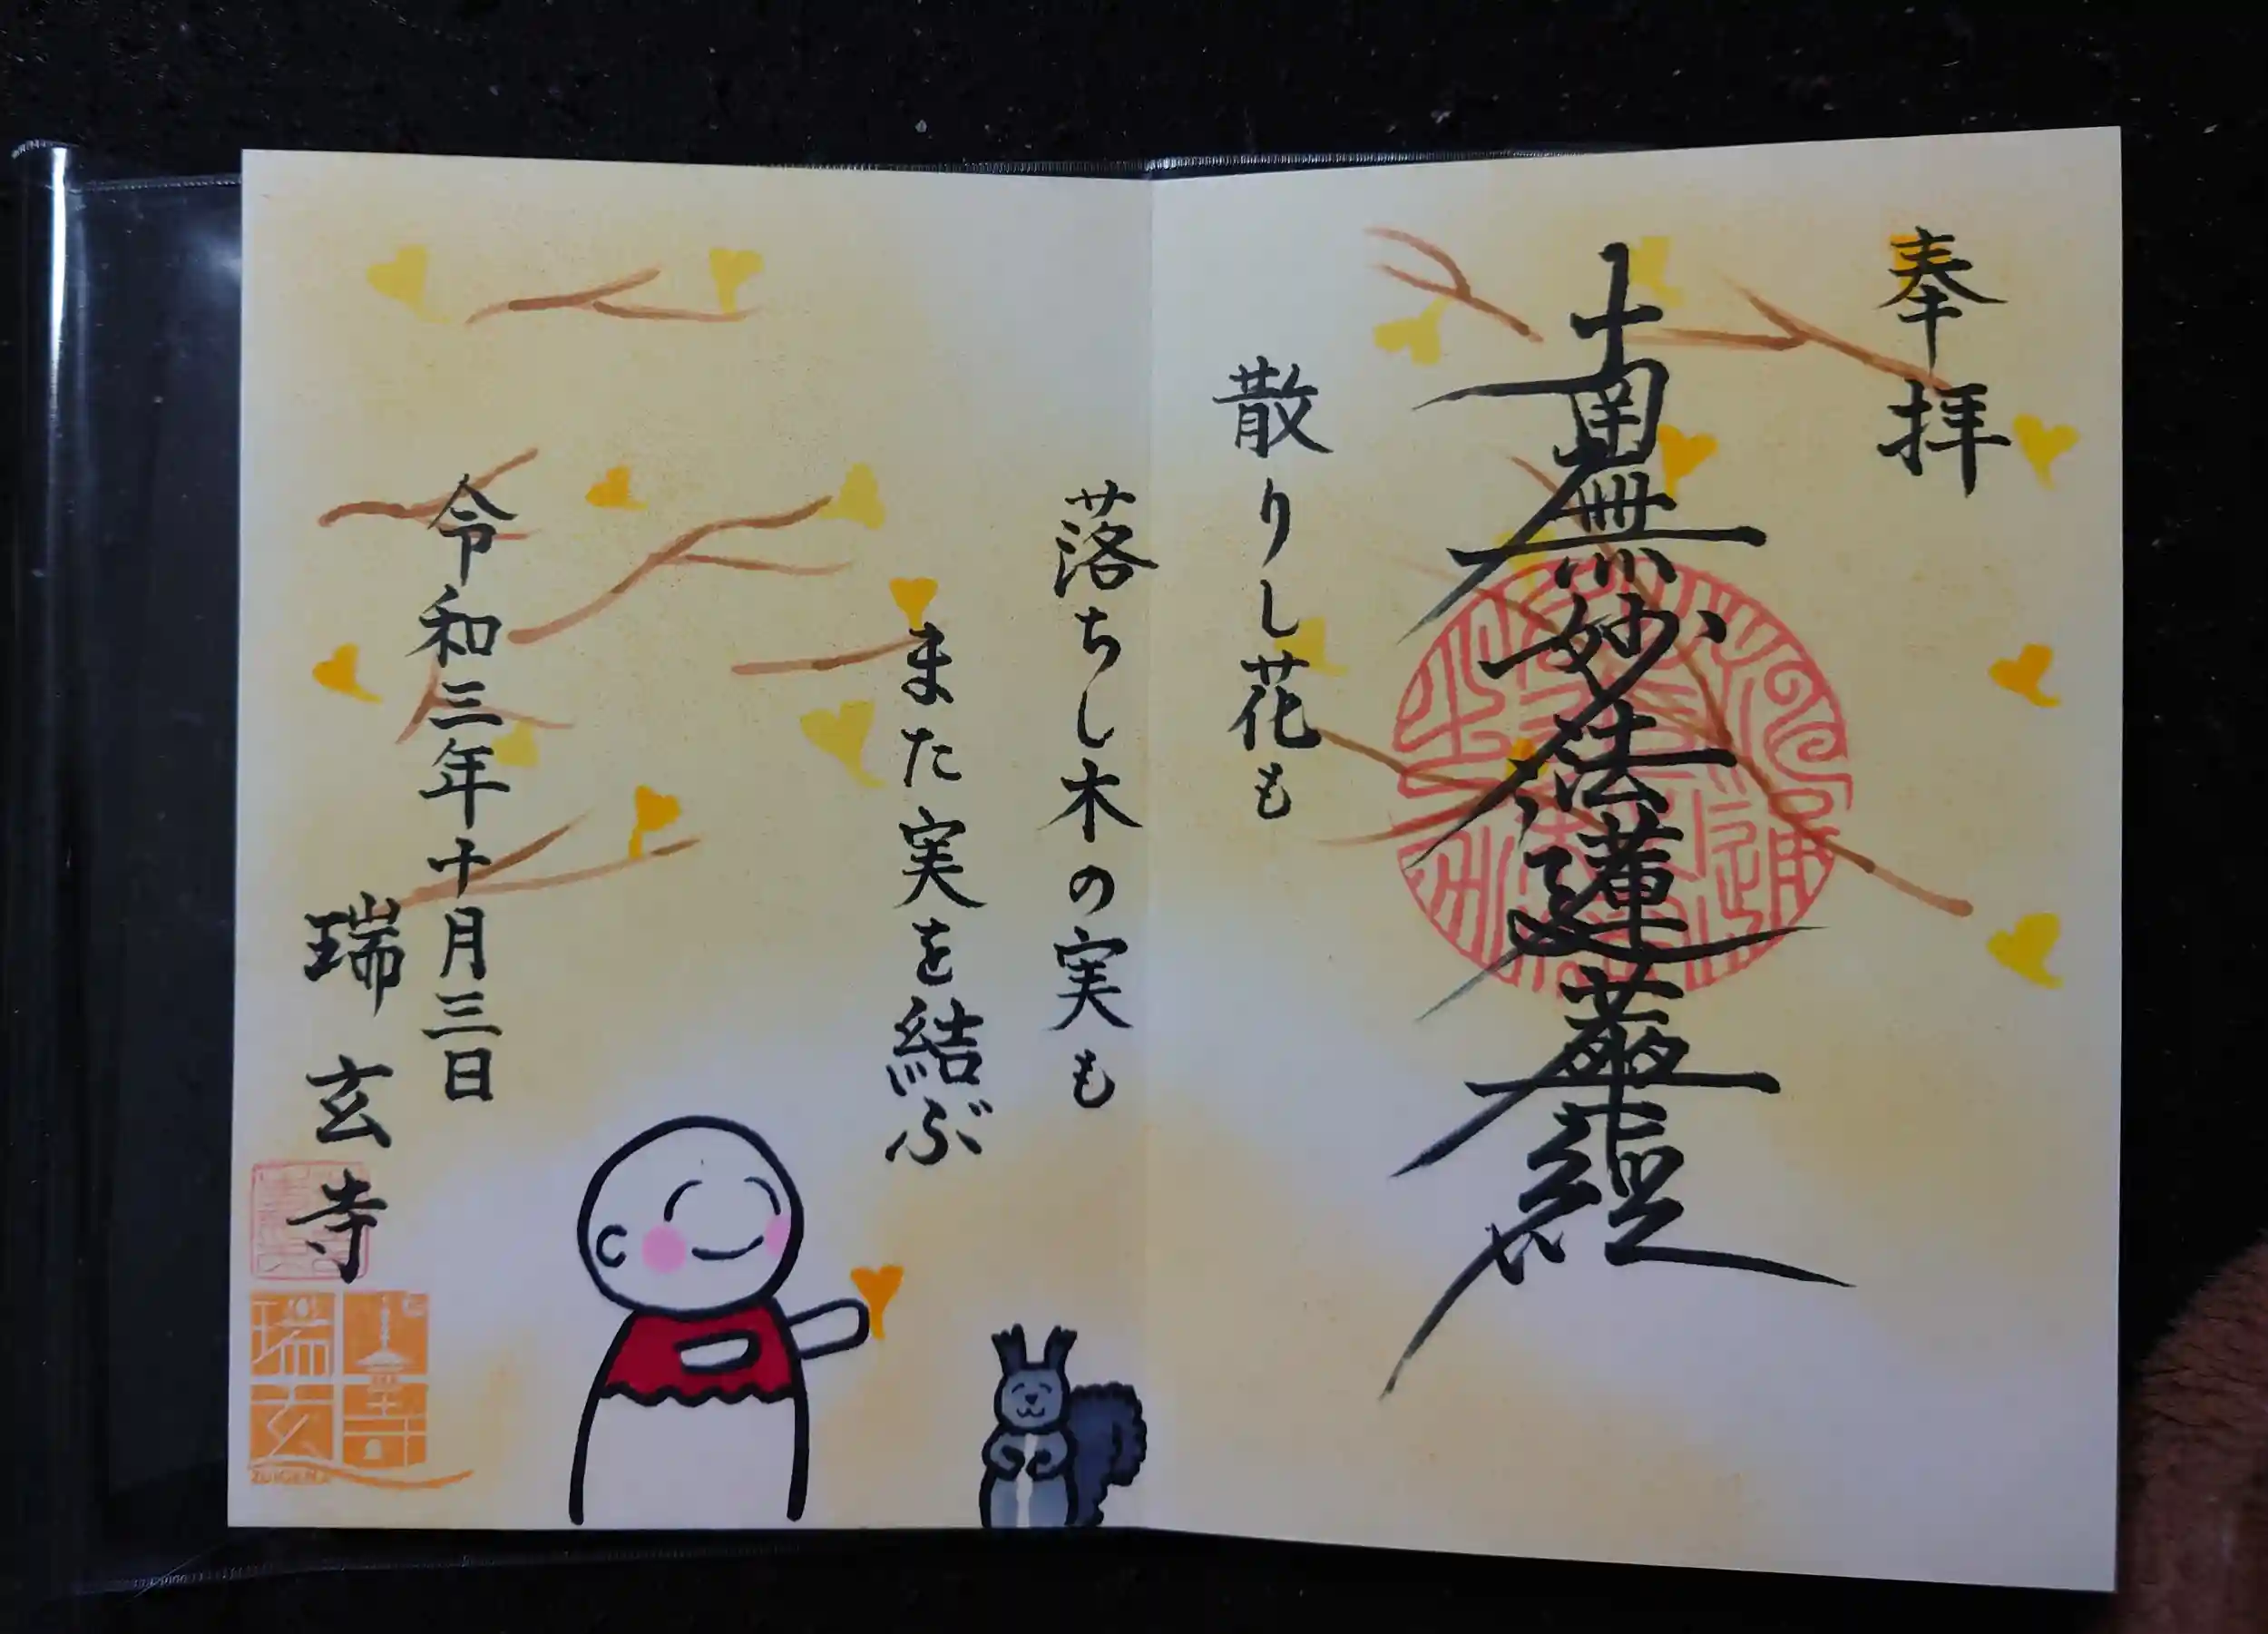 奉拝
南無妙法蓮華経
散りし花も
落ちし木の実も
また実を結ぶ
令和三年十月三日
瑞玄寺
瑞玄寺
ZUIGENJI